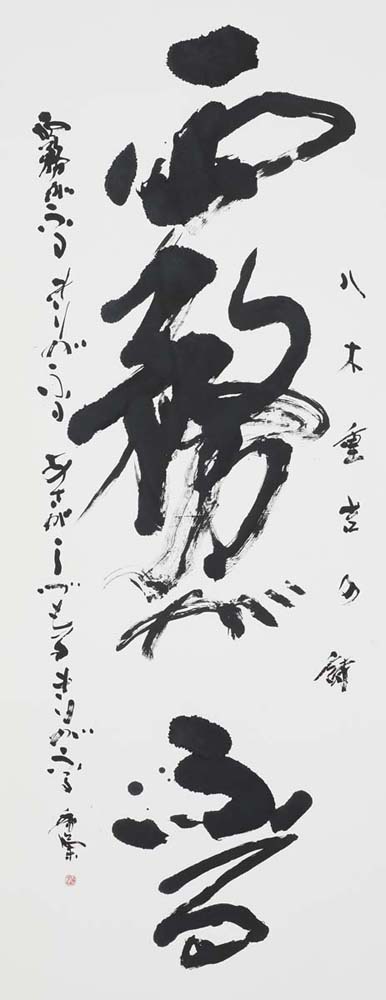 八木重吉の詩
霧がふる
霧がふる きりがふる あさがしづもる きりがふる